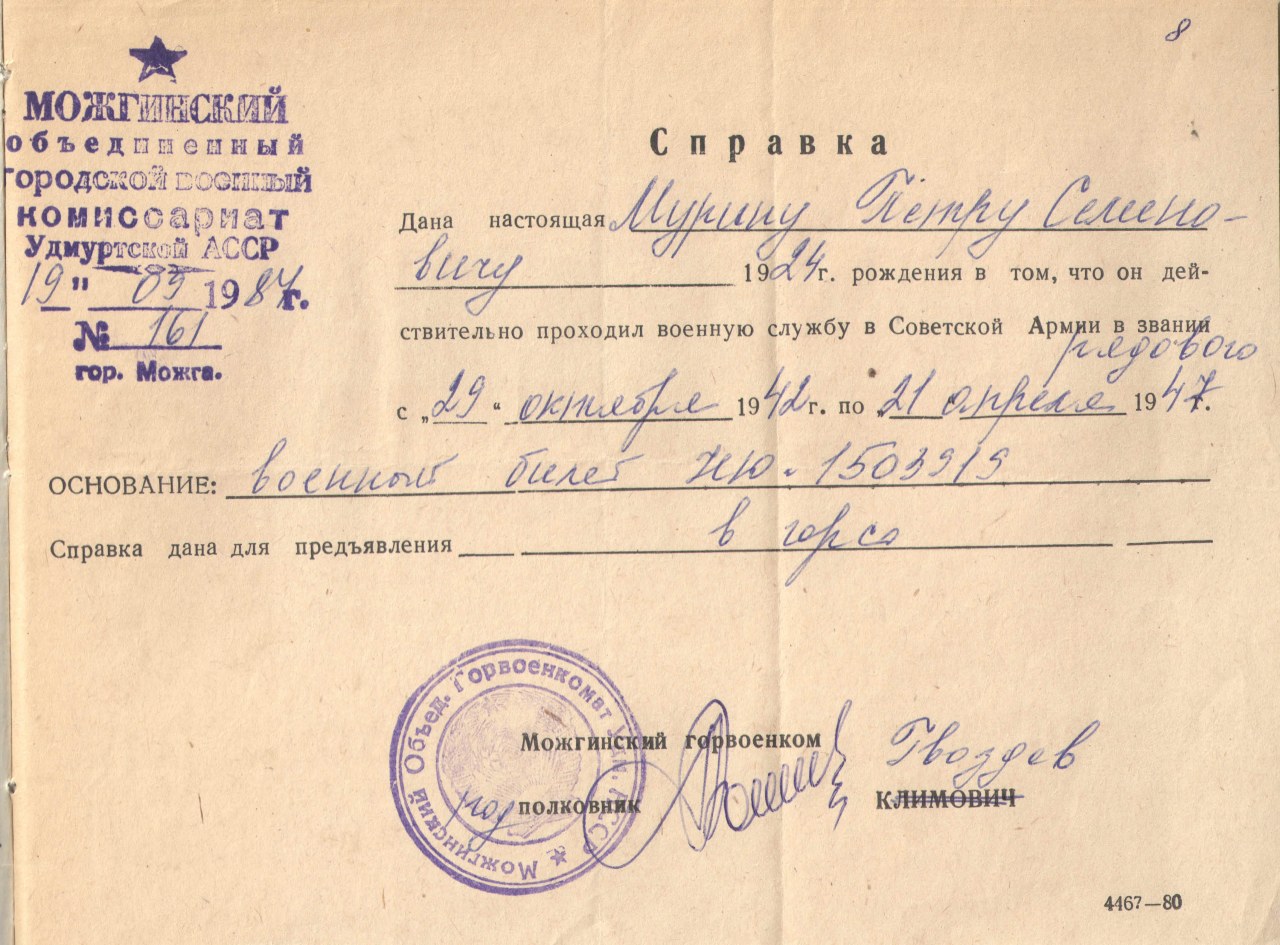 8
МОЖГИНСКИЙ
объединенный
городской военный
комиссариат
Удмуртской АССР
19 " 09 1987г.
№ 161
гор. Можга.
Справка
Дана настоящая Мурину Пётру Семено-
вичу 1924г. рождения в том, что он дей-
ствительно проходил военную службу в Советской Армии в звании
рядового
с „29" октября 1942г. по 21 апреля 1947г.
ОСНОВАНИЕ: военный билет НЮ. 1503919
Справка дана для предъявления в горсо
Можгинский Объед. Горвоенкомат Удм. АССР
Можгинский горвоенком Гвоздев
подполковник КЛИМОВИЧ
4467—80